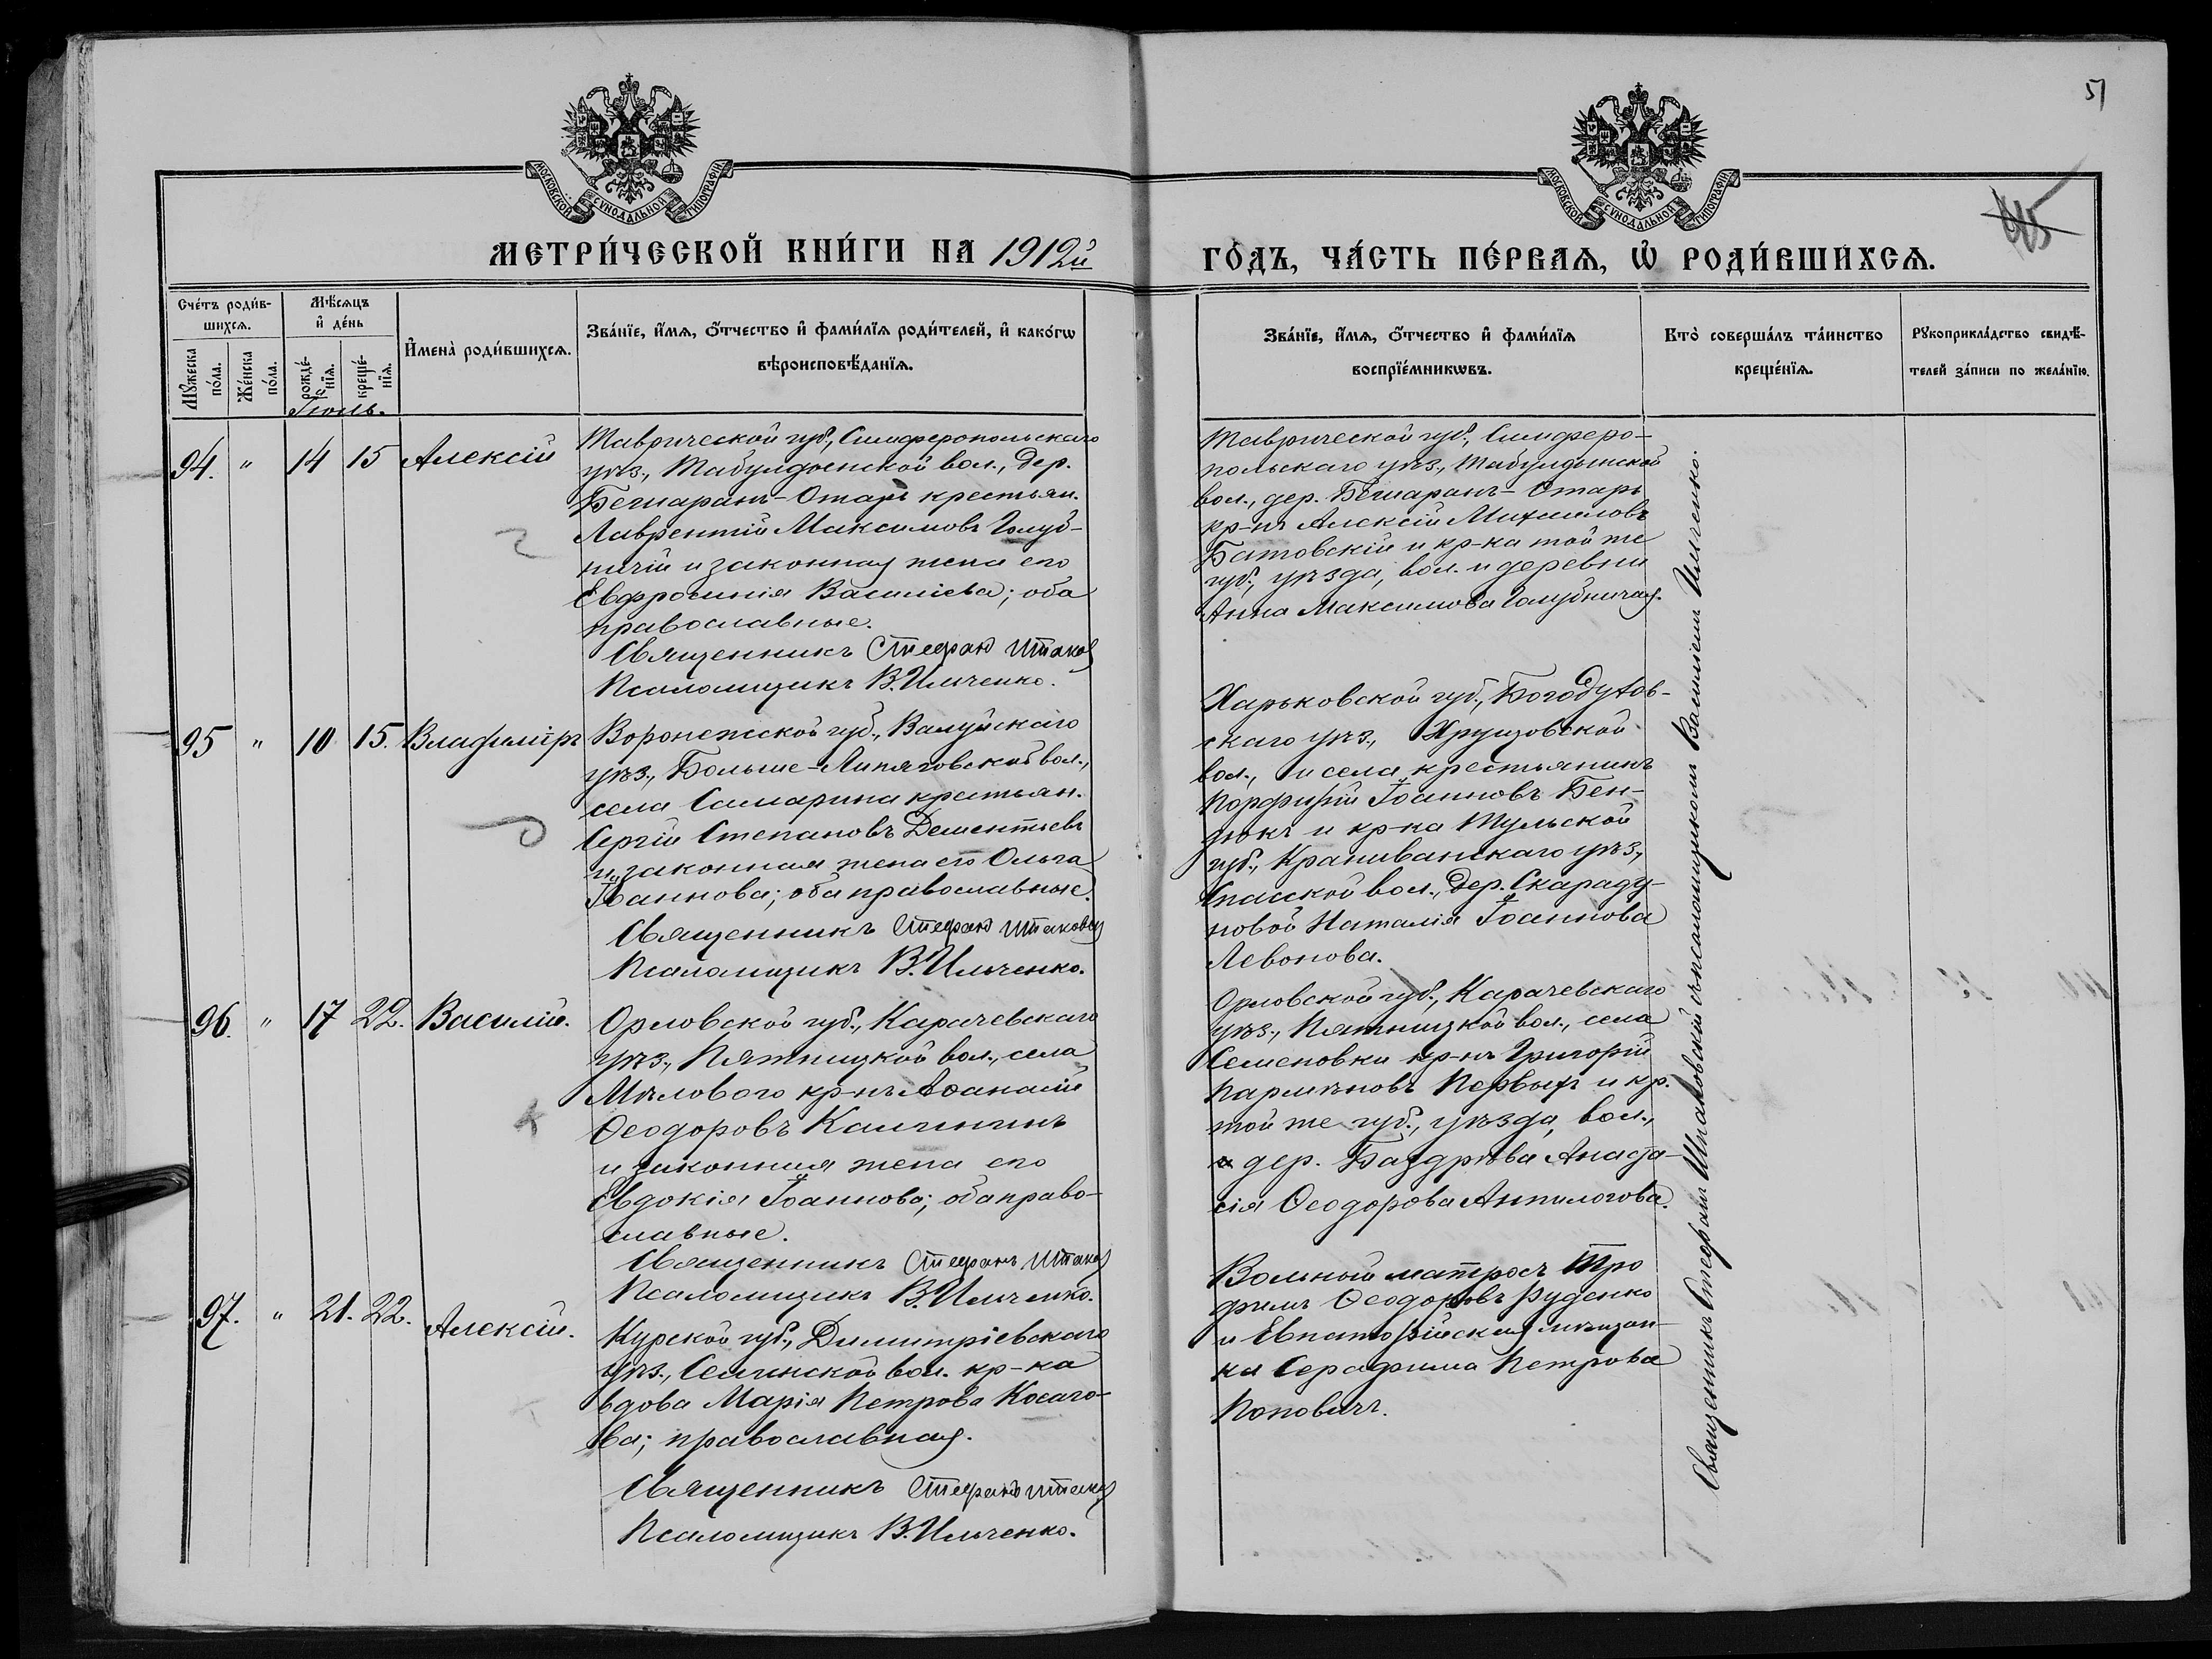 51
445
МОСКОВСКОЙ СѴНОДАЛЬНОЙ ТИПОГРАФІИ
МОСКОВСКОЙ СѴНОДАЛЬНОЙ ТИПОГРАФІИ
МЕТРИ́ЧЕСКОЙ КНИ́ГИ НА 1912й
ГО́ДЪ, ЧА́СТЬ ПЕ́РВАѦ, Ѡ҆ РОДИ́ВШИХСѦ.
Сче́тъ роди́в-
шихсѧ.
Мꙋ́жеска по́ла.
Же́нска по́ла.
Мѣ́сѧцъ
и҆ де́нь
рожде́-
нїѧ.
креще́-
нїѧ.
Іюль.
И҆мена̀ роди́вшихсѧ.
Зва́нїе, и҆́мѧ, ѻ҆́тчество и҆ фами́лїѧ роди́телей, и҆ како́гѡ
вѣроисповѣ́данїѧ.
Зва́нїе, и҆́мѧ, ѻ҆́тчество и҆ фами́лїѧ
воспрїе́мникѡвъ.
Кто̀ соверша́лъ та́инство
креще́нїѧ.
Рꙋкоприкла́дство свидѣ́-
телей за́писи по жела́нїю.
94. " 14 15 Алексій
Таврической губ., Симферопольскаго
уѣз., Табулдынской вол., дер.
Бешаранъ-Отаръ крестьян.
Лаврентій Максимовъ Голуб-
ничій и законная жена его
Евфросинія Василіева; оба
православные.
Священникъ Стефанъ
Псаломщикъ В. Ильченко.
Таврической губ., Симферо-
польскаго уѣз., Табулдынской
вол., дер. Бешаранъ-Отаръ
кр-нъ Алексій Михаиловъ
Батовскій и кр-ка той же
губ., уѣзда, вол. и деревни
Анна Максимова Голубничая.
95 " 10 15. Владиміръ
Воронежской губ., Валуйскаго
уѣз., Больше-Липяговской вол.,
села Самарина крестьян.
Сергій Степановъ Дементьевъ
и законная жена его Ольга
Іоаннова; оба православные.
Священникъ Стефанъ
Псаломщикъ В. Ильченко.
Харьковской губ., Богодухов-
скаго уѣз., Хрущовской
вол., и села крестьянинъ
Порфирій Іоанновъ Бен-
дюкъ и кр-ка Тульской
губ., Крапивинскаго уѣз.,
Спасской вол., дер. Скараду-
новой Наталія Іоаннова
Левонова.
96. " 17 22. Василій.
Орловской губ., Карачевскаго
уѣз., Пятницкой вол., села
Мѣлового кр-нъ Аѳанасій
Ѳеодоровъ Калининъ
и законная жена его
Евдокія Іоаннова; оба право-
славные.
Священникъ Стефанъ
Псаломщикъ В. Ильченко.
Орловской губ., Карачевскаго
уѣз., Пятницкой вол., села
Семеновки кр-нъ Григорій
Парменовъ Первыхъ и кр.
той же губ., уѣзда, вол.,
дер. Баздрѣва Анаста-
сія Ѳеодорова Анпилогова.
97. " 21. 22. Алексій.
Курской губ., Димитріевскаго
уѣз., Селинской вол. кр-ка
вдова Марія Петрова Косаго-
ва; православная.
Священникъ Стефанъ
Псаломщикъ В. Ильченко.
Вольный матросъ Тро
фимъ Ѳеодоровъ Руденко
и Евпаторійская мѣщан-
ка Серафима Петрова
Поповичъ.
Священникъ Стефанъ Шпаковскій съ псаломщикомъ Василіемъ Ильченко.